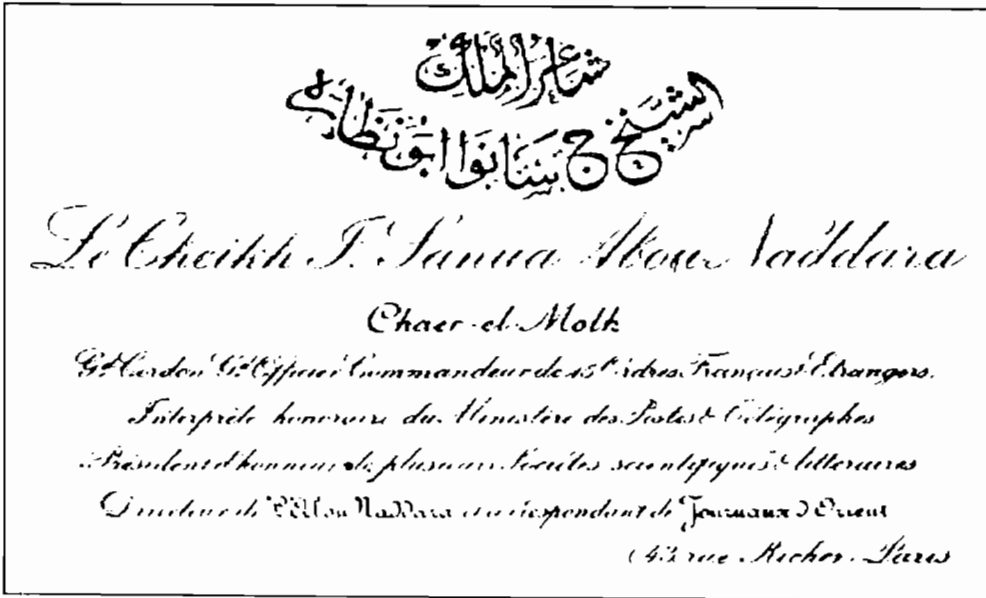 شاعر الملك
الشيخ ج سانوا ابو نظاره
Le Cheikh J. Sanua Abou Naddara
Chaer-el-Molk
Gd. Cordon Gd. Officier Commandeur de 15 Ordres Français & Etrangers.
Interprète honoraire du Ministère des Postes & Télégraphes
Président d'honneur de plusieurs Sociétés scientifiques & littéraires
Directeur de l'Abou Naddara et correspondant de Journaux d'Orient
43, rue Richer. Paris